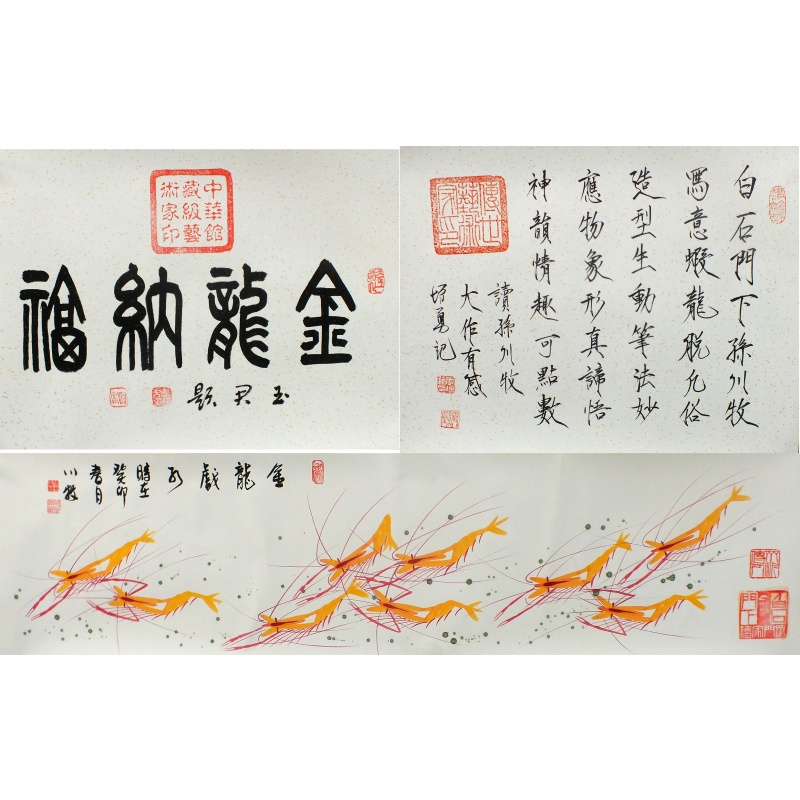 中華館
藏級藝
術家印
金龍納福
玉君題
白石門下孫川牧
寫意蝦龍脱凡俗
造型生動筆法妙
應物象形真諦悟
神韻情趣可點數
讀孫川牧
大作有感
培勇記
金龍戲水
時在
癸卯
春月
川牧